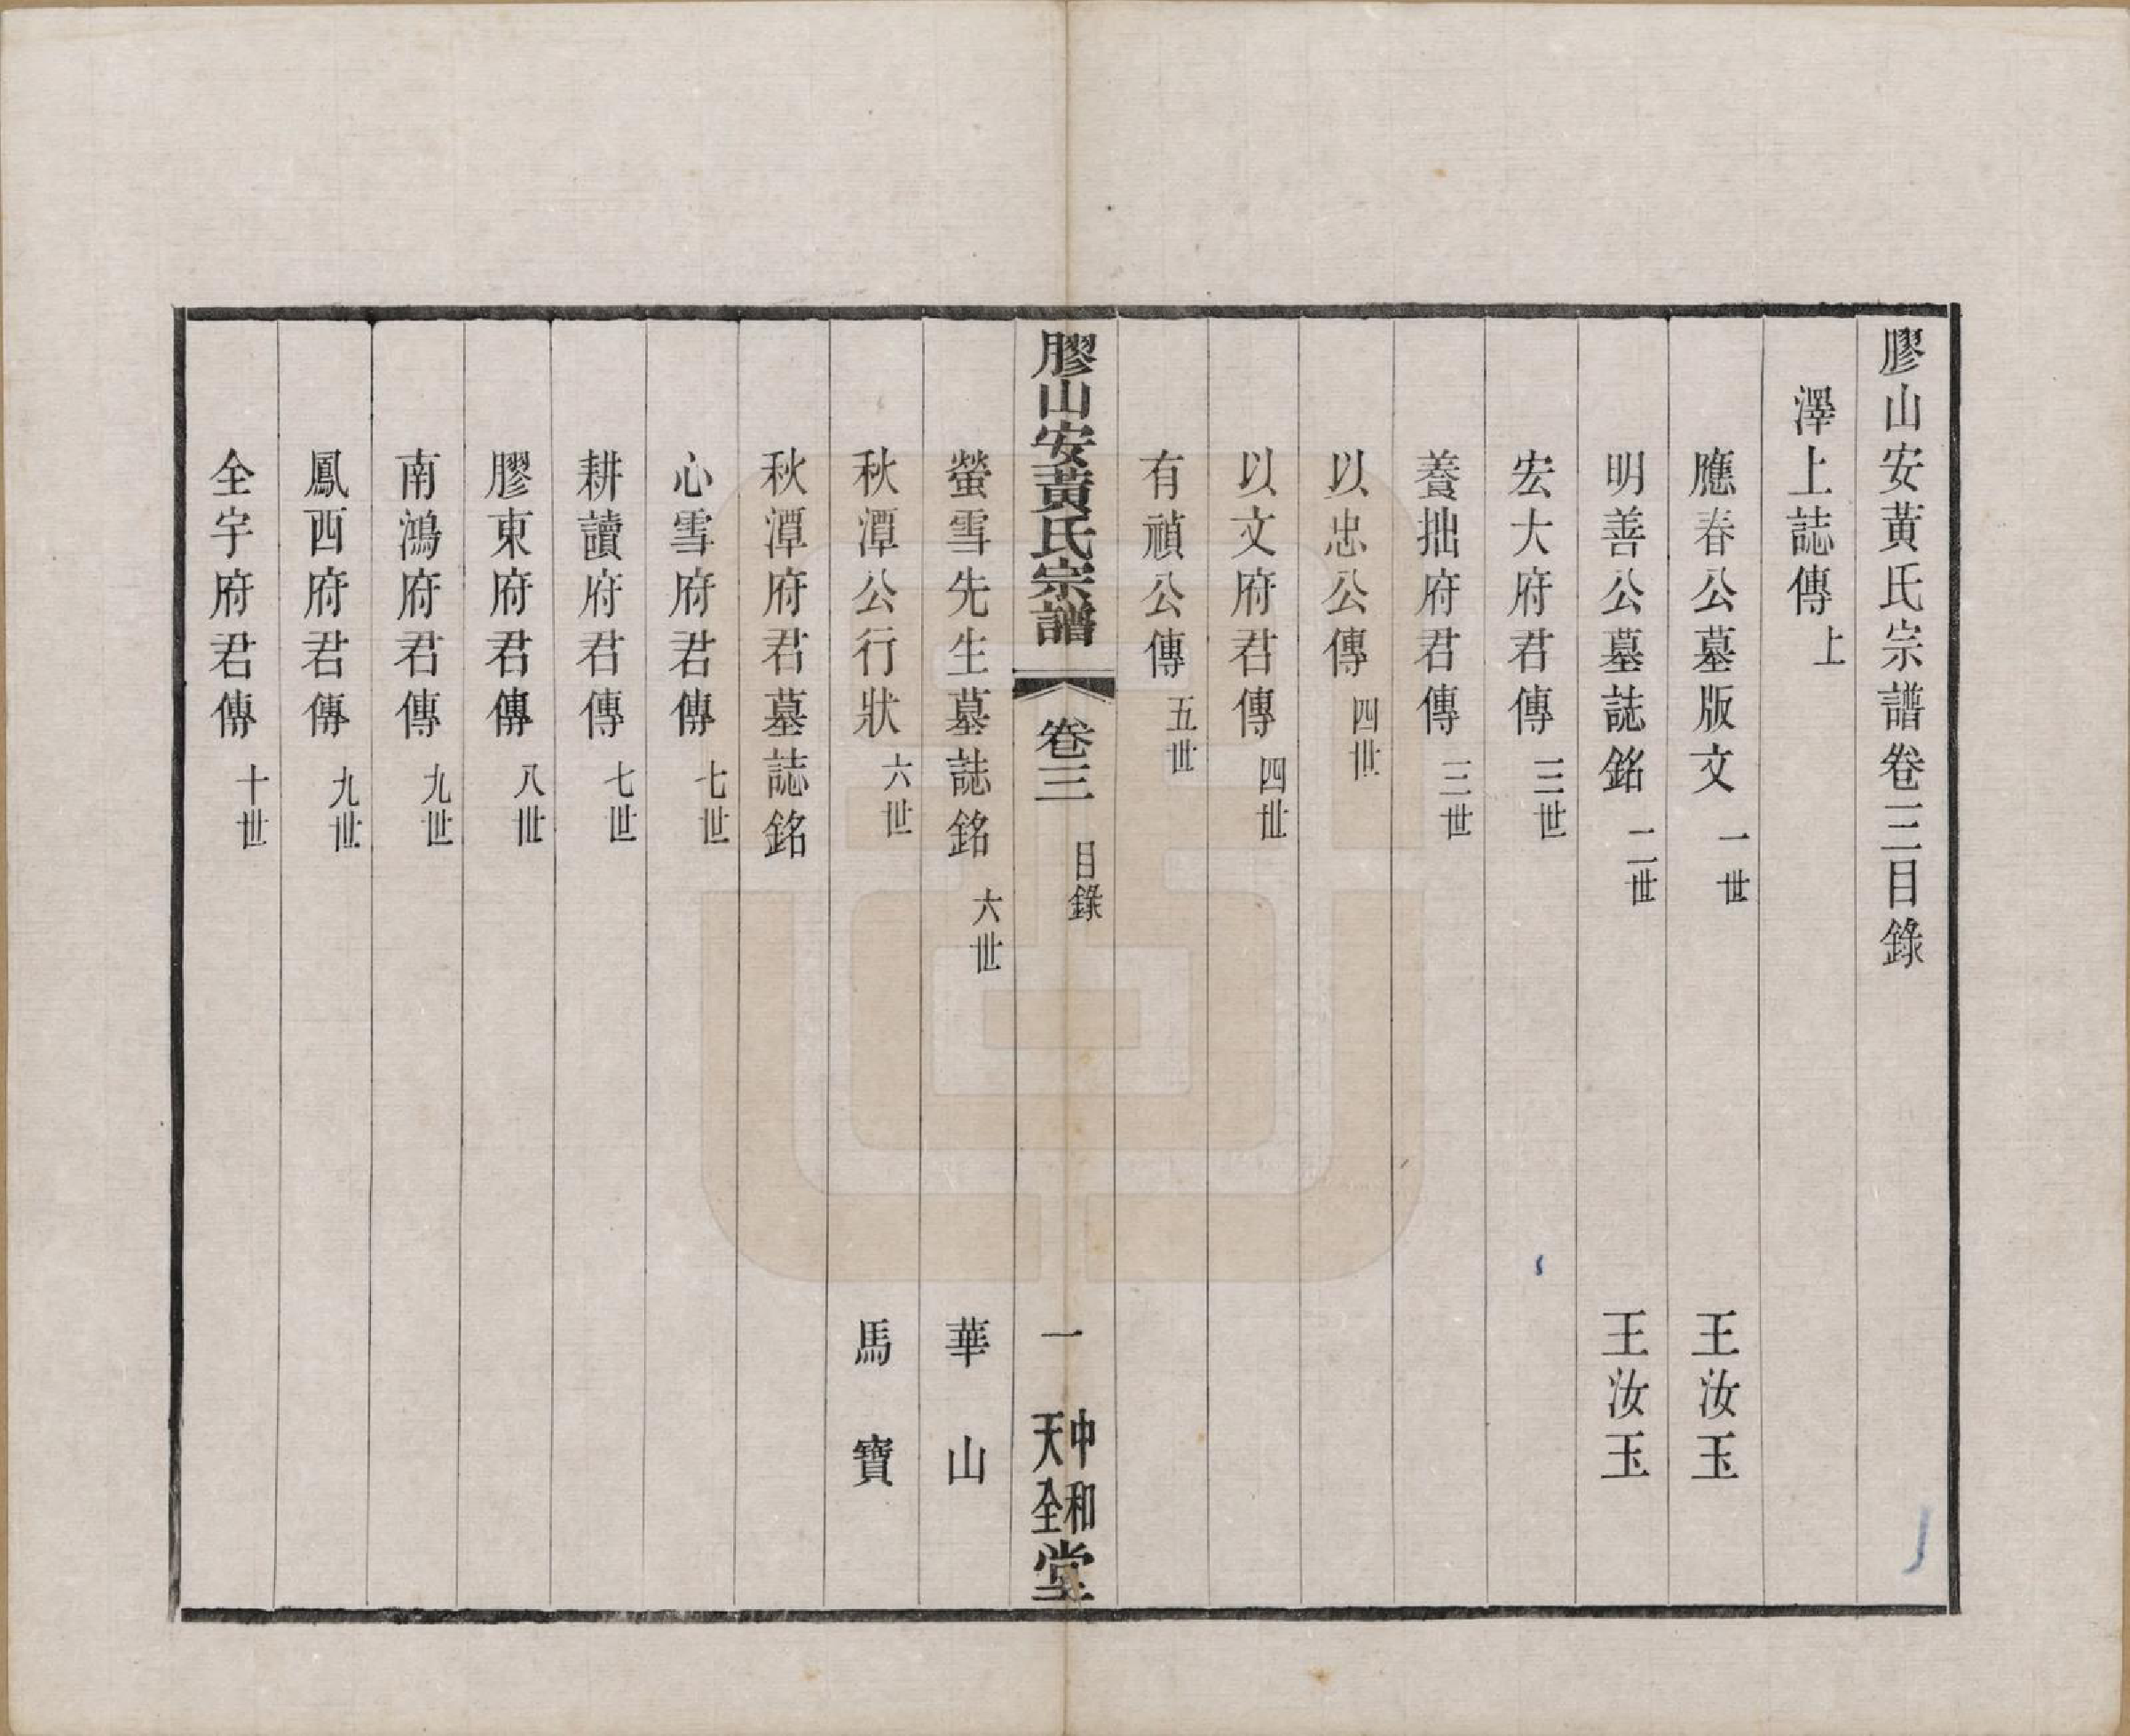 膠山安黃氏宗譜卷三目錄
澤上誌傳上
應春公墓版文 一世 王汝玉
明善公墓誌銘 二世 王汝玉
宏大府君傳 三世
養拙府君傳 三世
以忠公傳 四世
以文府君傳 四世
有禎公傳 五世
膠山安黃氏宗譜 卷三 目錄 一 中和天全堂
螢雪先生墓誌銘 六世 華山
秋潭公行狀 六世 馬寶
秋潭府君墓誌銘
心雪府君傳 七世
耕讀府君傳 七世
膠東府君傳 八世
南鴻府君傳 九世
鳳西府君傳 九世
全宇府君傳 十世